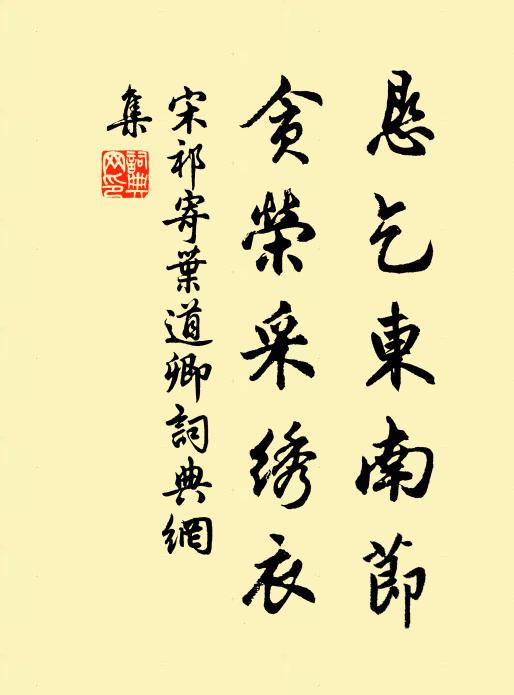 恳乞東南節
貪榮采綉衣
宋祁寄葉道卿詞典網
集
詞典
网印